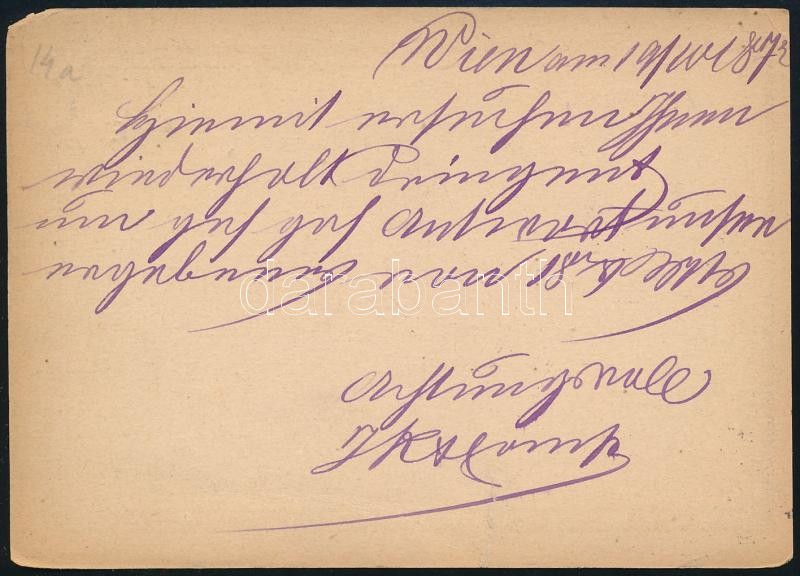 14a
Wien am 19/
Hiemit ersuchen Ihnen
wiederholt dringent
um gef Antwort unser
ergebenes von 18
Achtungsvoll
darabanth